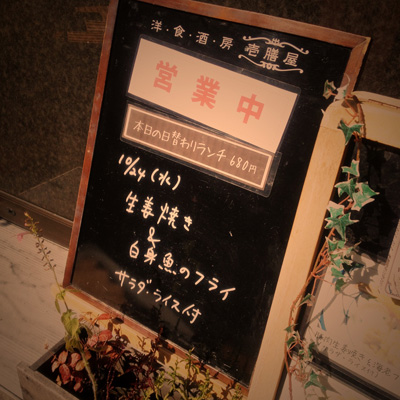 洋・食・酒・房 壱膳屋
営業中
本日の日替わりランチ 680円
10/24(水)
生姜焼き
&
白身魚のフライ
サラダ・ライス付